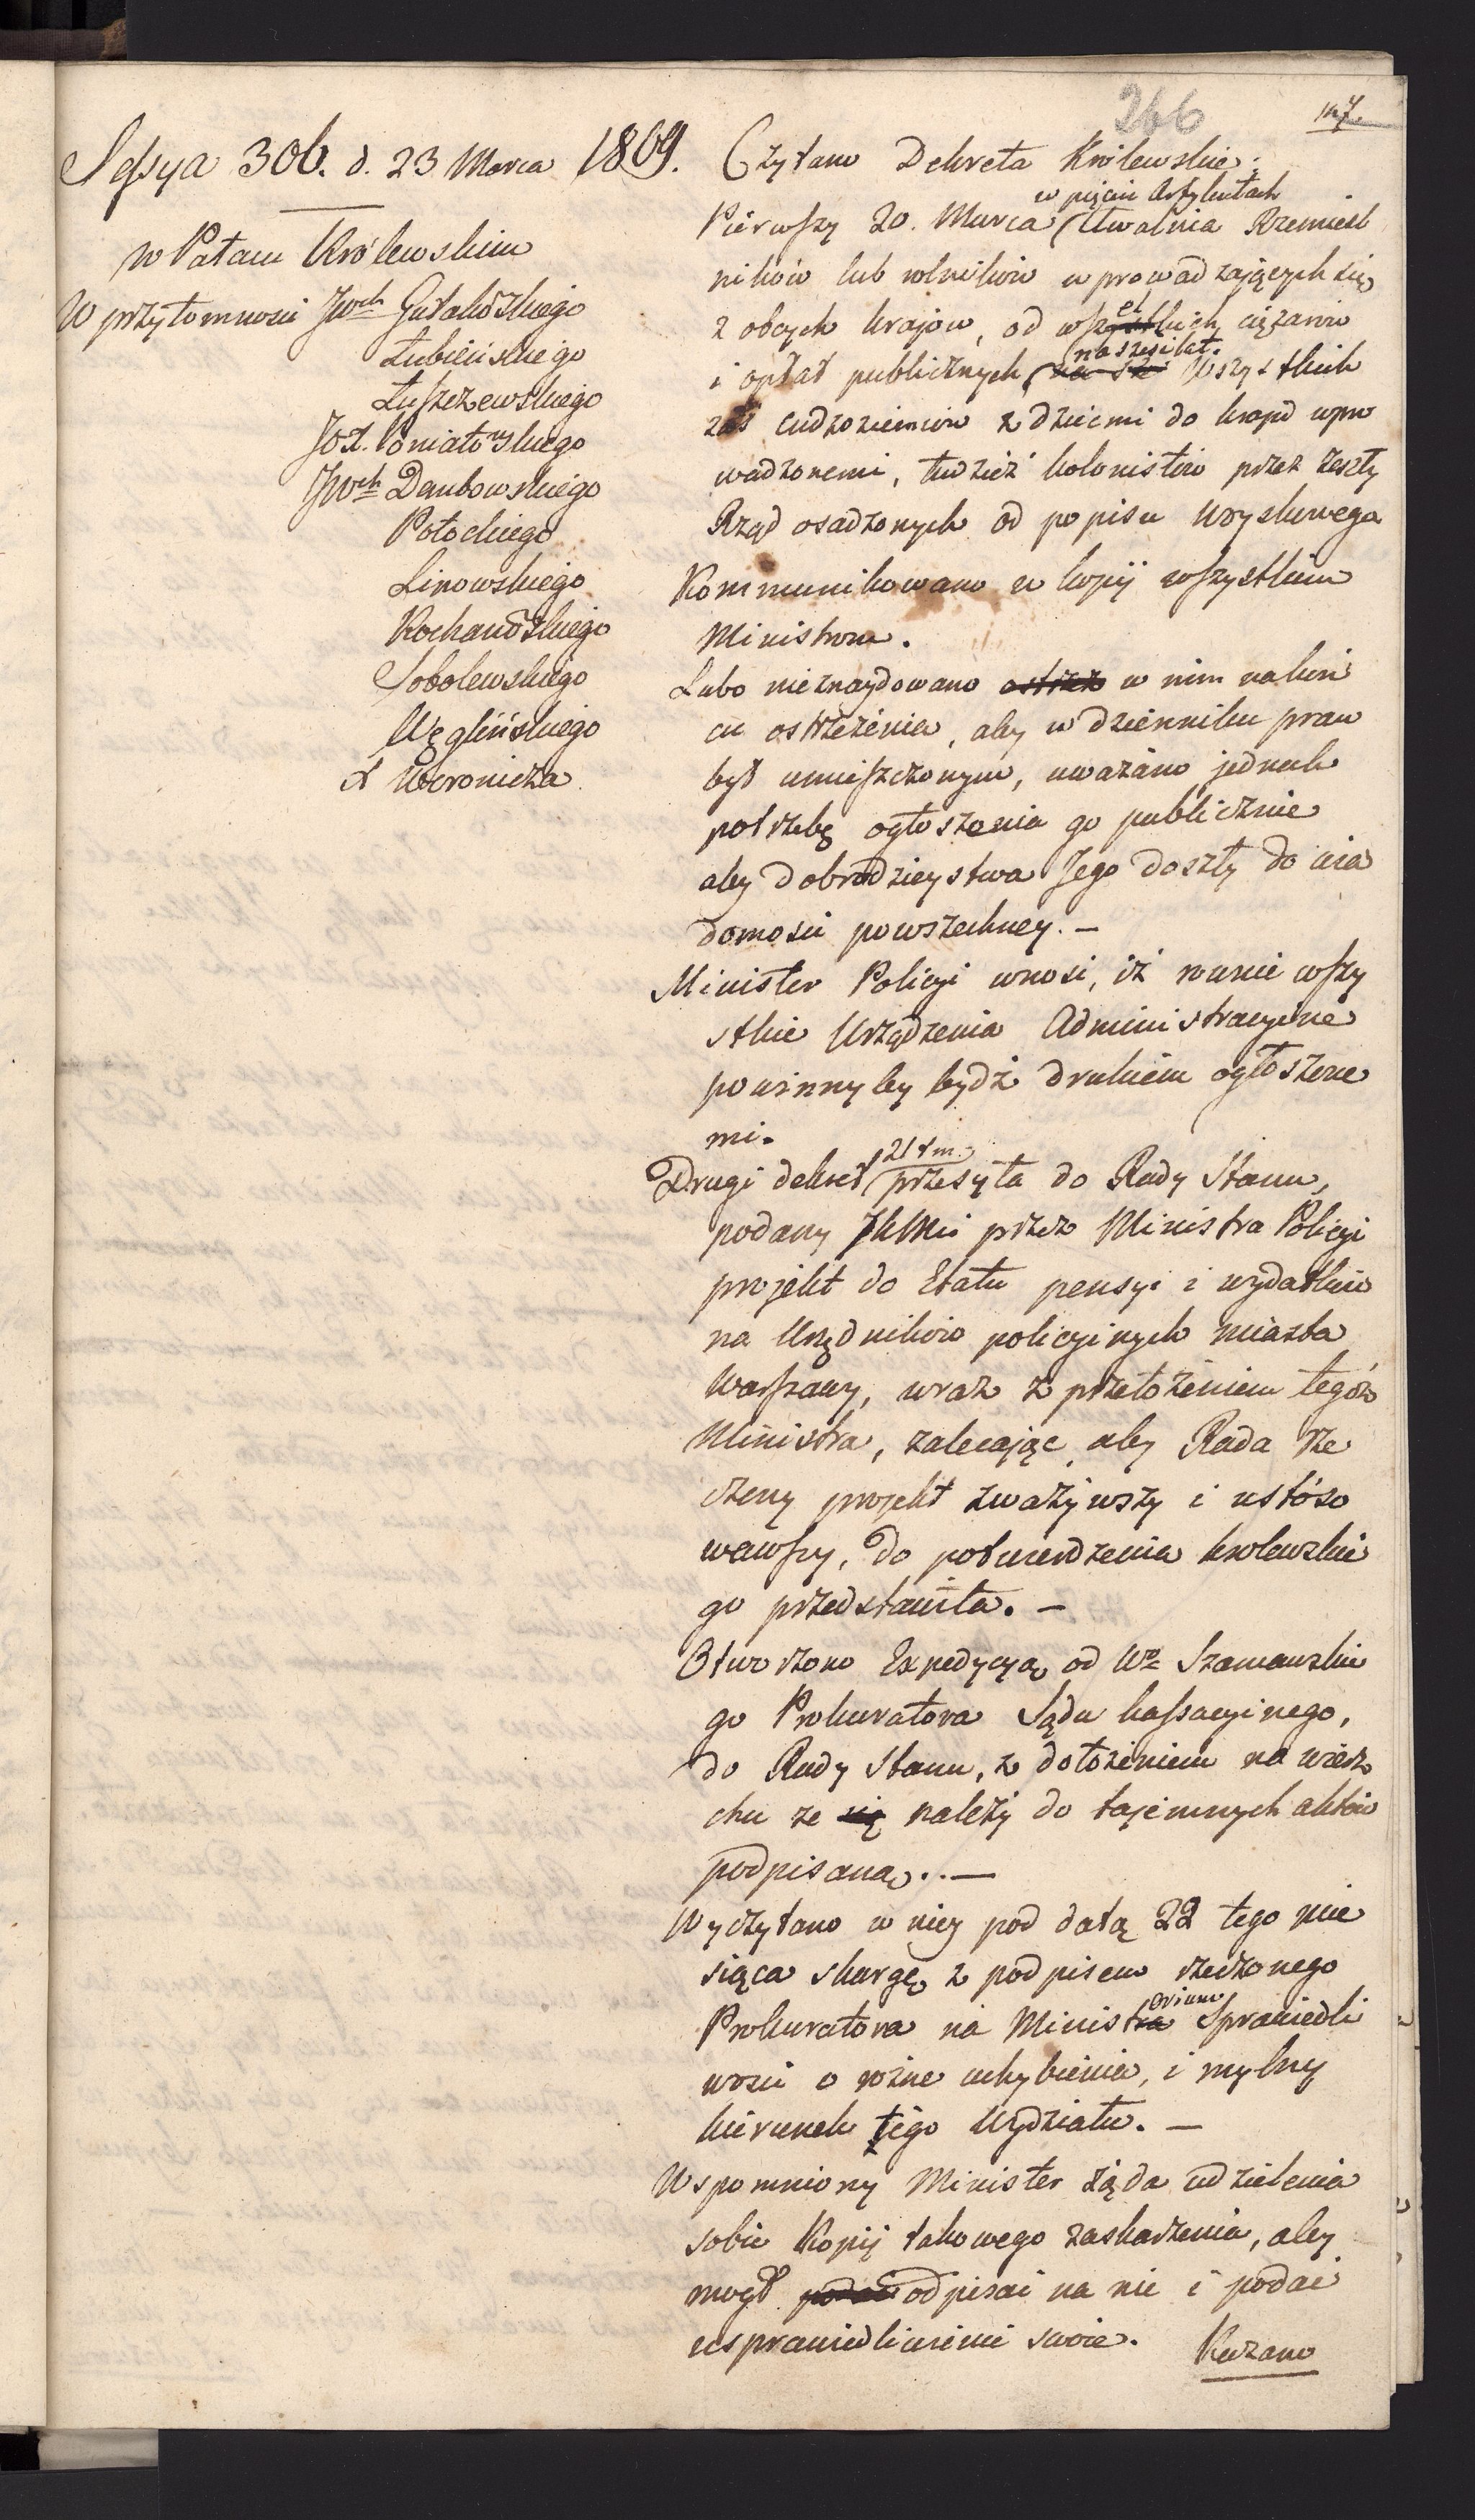 266
147.
Sessya 306. d. 23 Marca 1809.
w Pałacu Królewskim
W przytomności JWch Gutakowskiego
Łubieńskiego
Łuszczewskiego
JOX. Poniatowskiego
JWch Dembowskiego
Potockiego
Linowskiego
Kochanowskiego
Sobolewskiego
Węglińskiego
X Woronicza.
Czytano Dekreta Królewskie:
w pięciu Artykułach
Pierwszy 20. Marca Uwalnia Rzemieśl
ników lub rolników wprowadzających się
z obcych krajów, od wszelkich ciężarów
na sześć lat.
i opłat publicznych, Wszystkich
zaś cudzoziemców z dziećmi do kraju wpro
wadzonemi, tudzież kolonistów przez zeszły
Rząd osadzonych od popisu woyskowego
Kommunikowano w kopij wszystkim
Ministrom.
Lubo nieznaydowano ostrzeż w nim na koń
cu ostrzeżenia, aby w dzienniku praw
był umieszczonym, uważano jednak
potrzebę ogłoszenia go publicznie
aby dobrodzieystwa Jego doszły do wia
domości powszechney. —
Minister Policyi wnosi, iż równie wszy
stkie Urządzenia Administracyine
powinnyby bydź drukiem ogłoszone
mi.
21 t m.
Drugi dekret przesyła do Rady Stanu,
podany JKMci przez Ministra Policyi
projekt do Etatu pensyi i wydatków
na Urzędników policyinych miasta
Warszawy, wraz z przełożeniem tegoż
Ministra, zalecając aby Rada rze
czony projekt zważywszy i ustóso
wawszy, do potwierdzenia krolewskie
go przedstawiła. —
Otworzono Expedycyą od Wo Szaniawskie
go Prokuratora Sądu kassacyinego,
do Rady Stanu, z dołożeniem na wierz
chu że się należy do tajemnych aktów
podpisana. —
Wyczytano w niey pod datą 22 tego mie
siąca skargę z podpisem rzeczonego
Prokuratora na Ministra orium Sprawiedli
wości o różne uchybienia, i mylny
kierunek tego Wydziału. —
Wspomniony Minister żąda udzielenia
sobie Kopij takowego zaskarżenia, aby
mógł podać odpisać na nie i podać
usprawiedliwienie swoie.
Kazano